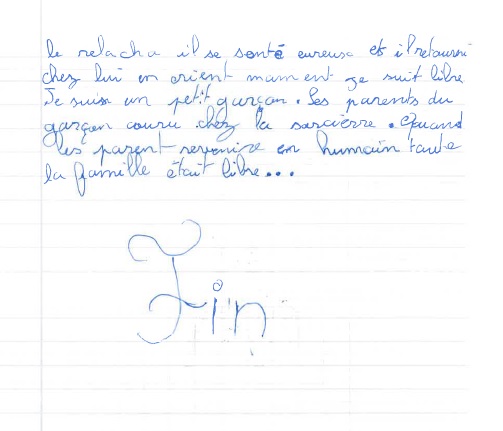 le relacha il se senté eureuse et il retourni
chez lui en crient mam ent je suit libre
Je suis un petit garçon. Les parents du
garçon couru chez la sarcierre. Quand
les parent revenire en humain taute
la famille était libre...
Fin